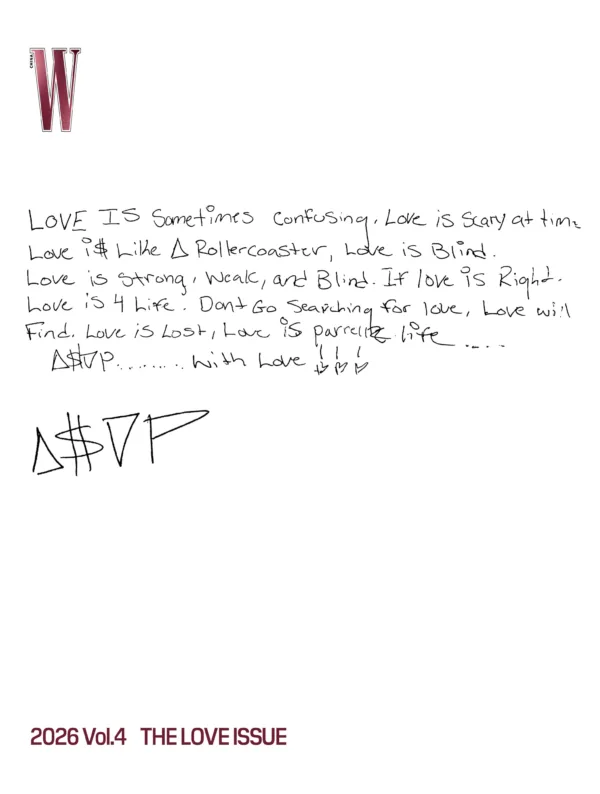 CHINA
W
LOVE IS Sometimes confusing, Love is Scary at time
Love i$ Like Δ Rollercoaster, Love is Blind.
Love is Strong, Weak, and Blind. If love is Right.
Love is 4 Life. Dont Go Searching for love, Love will
Find. Love is Lost, Love is parrelle life ....
Δ$∇P........ With Love ! ! !
Δ$∇P
2026 Vol.4 THE LOVE ISSUE